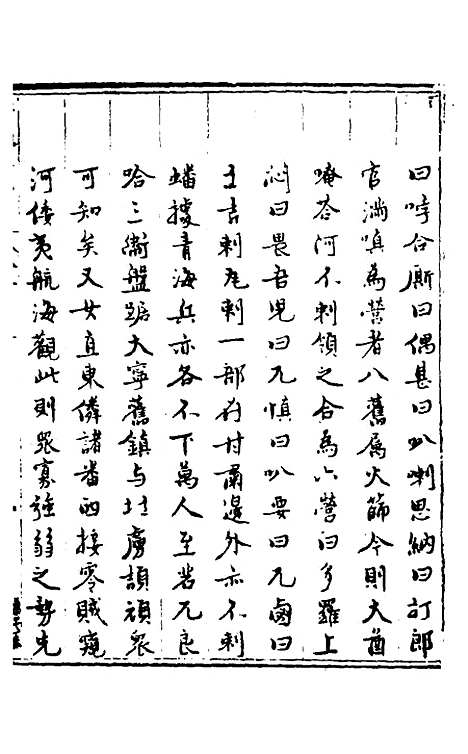 曰哱合廝曰偶甚曰叭喇思納曰訂郎
官滿嗔為營者八舊属火篩今則大酋
唵荅河不剌領之合為六營曰多羅上
悶曰畏吾児曰兀慎曰叭要曰兀鹵曰
王吉剌尾剌一部在甘肅邊外亦不剌
蟠據青海兵亦各不下萬人至若兀良
哈三衛盤踞大寧舊鎮与北虜頡頏眾
可知矣又女直東隣諸番西接零賊窺
河倭夷航海觀此則眾寡強弱之勢先